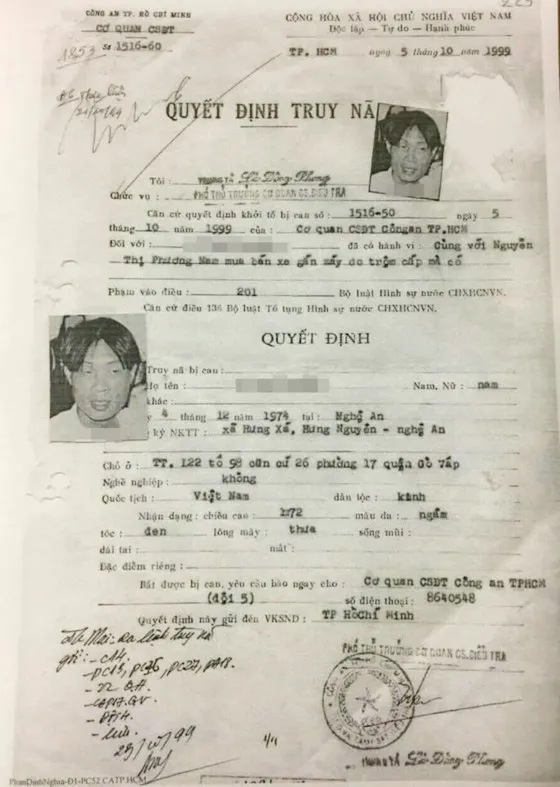 CÔNG AN TP. HỒ CHÍ MINH
CƠ QUAN CSĐT
Số 1516-60
1853
CỘNG HÒA XÃ HỘI CHỦ NGHĨA VIỆT NAM
Độc lập — Tự do — Hạnh phúc
TP. HCM ngày 5 tháng 10 năm 1999
QUYẾT ĐỊNH TRUY NÃ
Tôi : TRUNG TÁ Lê Đông Phong
Chức vụ : PHÓ THỦ TRƯỞNG CƠ QUAN CS.ĐIỀU TRA
Căn cứ quyết định khởi tố bị can số : 1516-50 ngày 5
tháng 10 năm 1999 của : Cơ quan CSĐT Côngan TP.HCM
Đối với : đã có hành vi : Cùng với Nguyễn
Thị Phương Nam mua bán xe gắn máy do trộm cắp mà có
Phạm vào điều : 201 Bộ luật Hình sự nước CHXHCNVN.
Căn cứ điều 136 Bộ luật Tố tụng Hình sự nước CHXHCNVN.
QUYẾT ĐỊNH
Truy nã bị can :
Họ tên : Nam, Nữ : nam
khác :
y 4 tháng 12 năm 1974 tại : Nghệ An
ký NKTT : xã Hưng Xá, Hưng Nguyên - nghệ An
Chỗ ở : TT. 122 tổ 98 căn cứ 26 phường 17 quận Gò Vấp
Nghề nghiệp : không
Quốc tịch : Việt Nam dân tộc : kinh
Nhận dạng : chiều cao : 1m72 màu da : ngăm
tóc : đen lông mày : thưa sống mũi :
dái tai : mắt :
Đặc điểm riêng :
Bắt được bị can, yêu cầu báo ngay cho : Cơ quan CSĐT Công an TPHCM
(đội 5) số điện thoại : 8640548
Quyết định này gửi đến VKSND : TP HồChí Minh
PHÓ THỦ TRƯỞNG CƠ QUAN CS.ĐIỀU TRA
ra lệnh truy nã
TRUNG TÁ Lê Đông Phong
PhanDinhNghia-Đ1-PC52 CATP.HCM